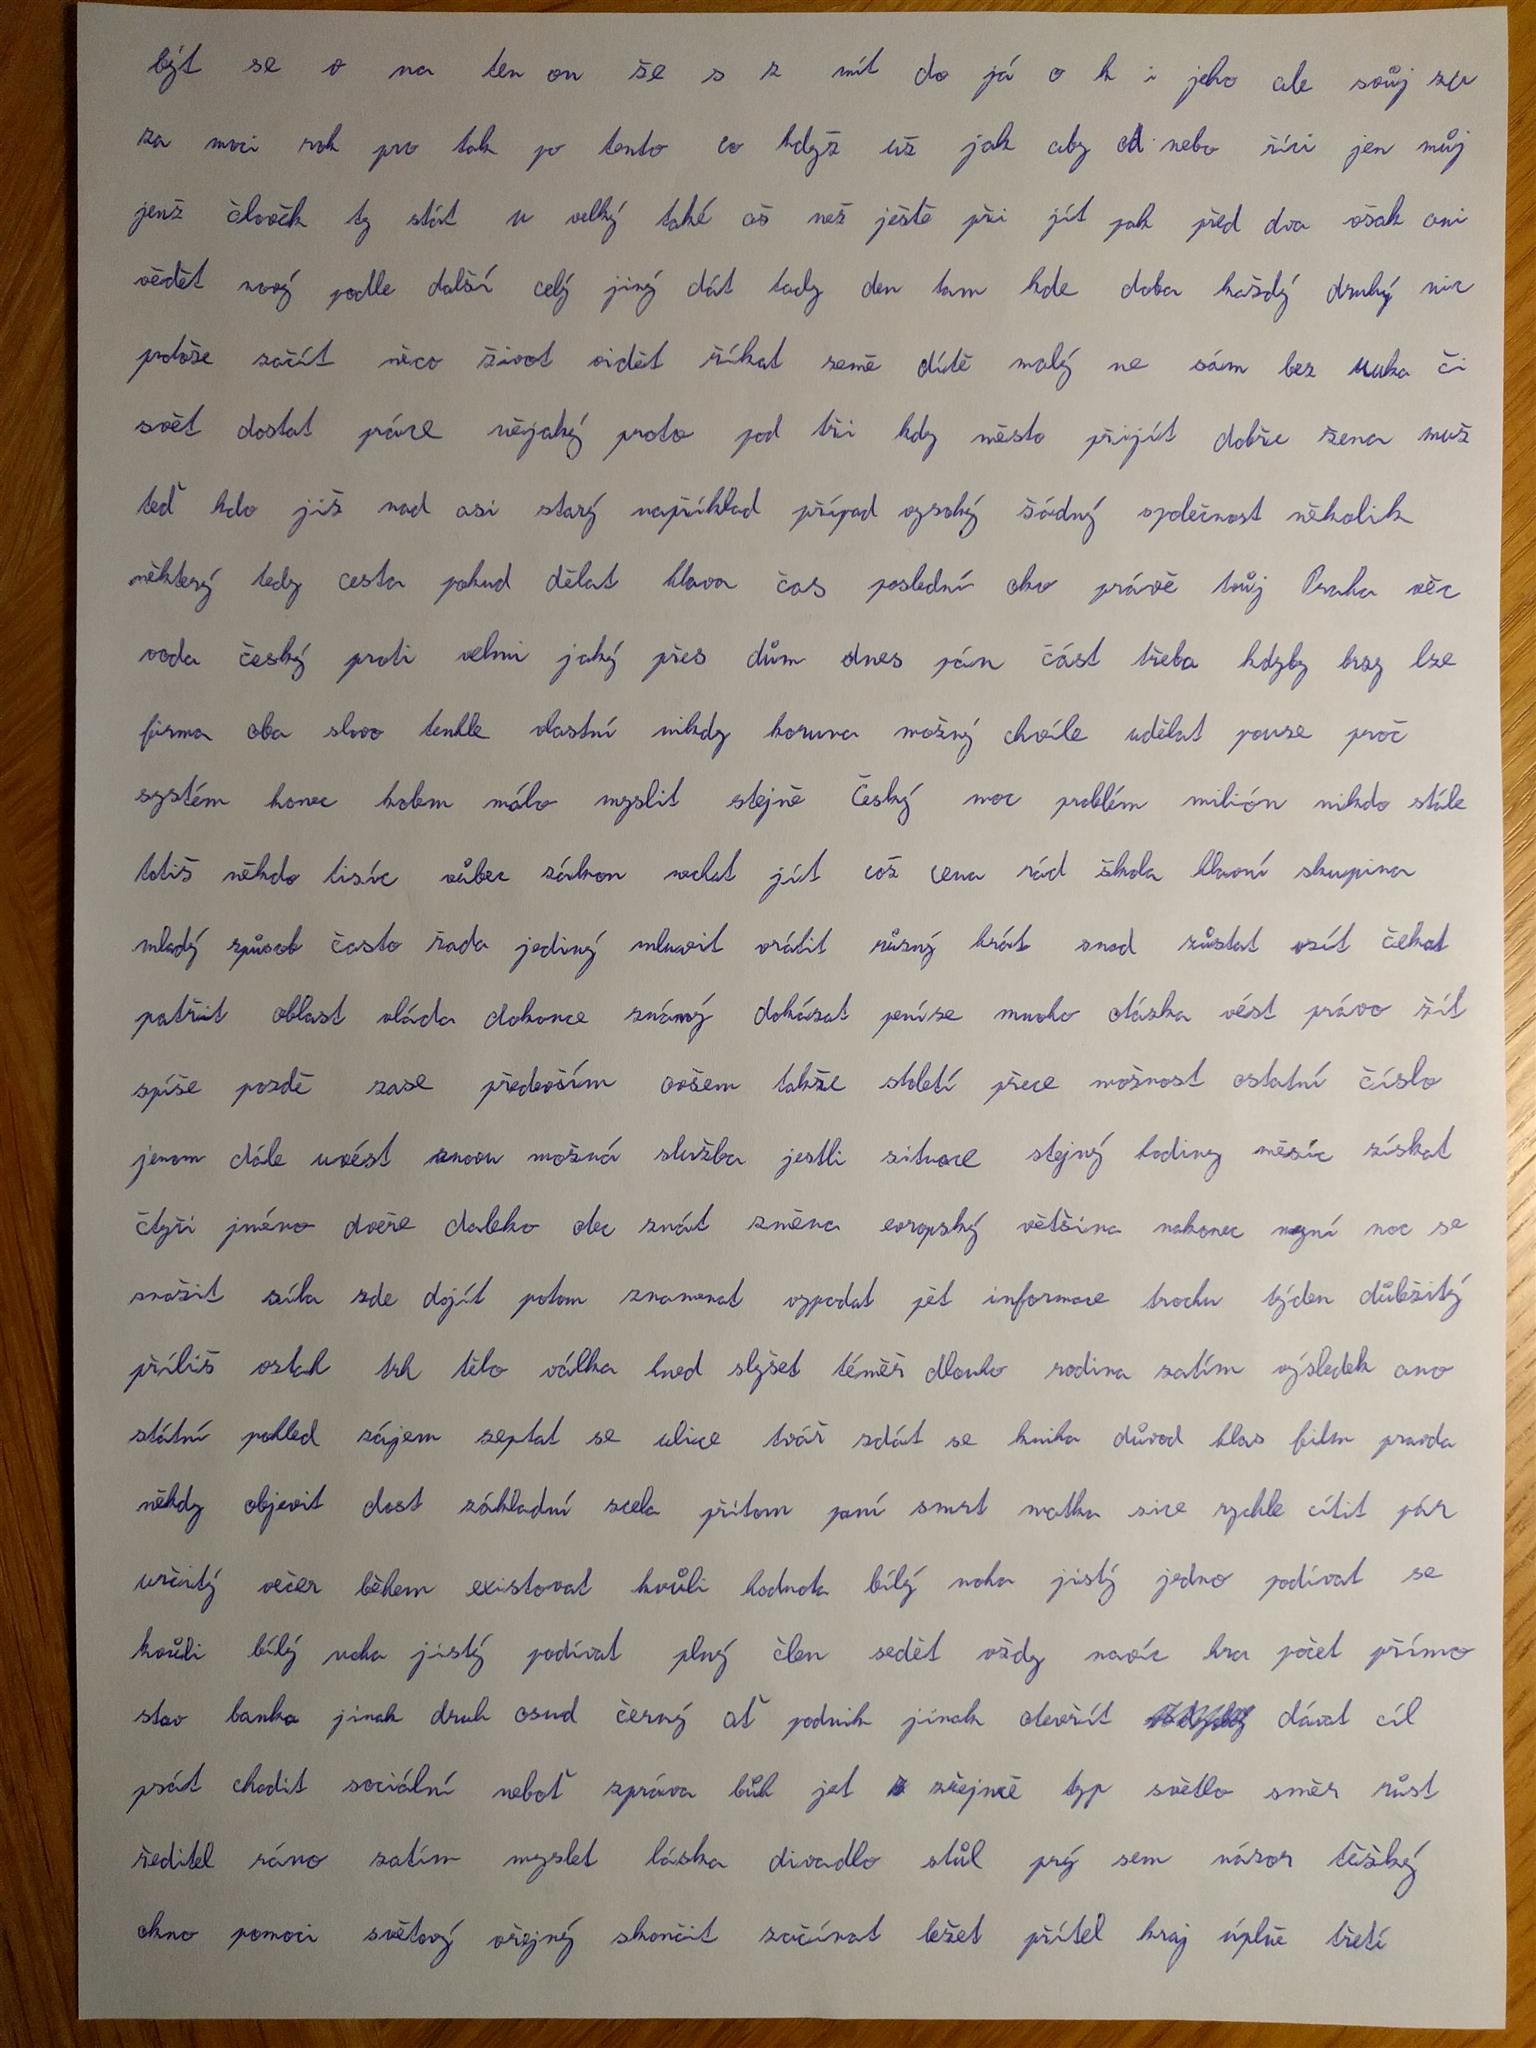 být se v na ten on že s z mít do já o k i jeho ale svůj za
za moci rok pro tak po tento co když už jak aby od nebo říci jen můj
jenž člověk ty stát u velký také až než ještě při jít pak před dva však ani
vědět nový podle další celý jiný dát tady den tam kde doba každý druhý nic
protože začít něco život vidět říkat země dítě malý ne sám bez ruka či
svět dostat práce nějaký proto pod tři kdy město přijít dobře žena muž
teď kdo již nad asi starý například případ vysoký žádný společnost několik
některý tedy cesta pokud dělat hlava čas poslední oko právě tvůj Praha věc
voda český proti velmi jaký přes dům dnes pán část třeba kdyby brzy lze
firma oba slovo tenhle vlastní nikdy koruna možný chvíle udělat pouze proč
systém konec kolem málo myslit stejně Český moc problém milión nikdo stále
totiž někdo tisíc vůbec zákon nechat jít což cena rád škola hlavní skupina
mladý způsob často řada jediný mluvit vrátit různý krát snad zůstat vzít čekat
patřit oblast vláda dokonce známý dokázat peníze mnoho otázka vést právo žít
spíše pozdě zase především ovšem takže století přece možnost ostatní číslo
jenom dále uvést znovu možná služba jestli situace stejný hodiny měsíc získat
čtyři jméno dveře daleko obec znát změna evropský většina nakonec nyní noc se
snažit síla zde dojít potom znamenat vypadat pět informace trochu týden důležitý
příliš vztah trh tělo válka hned slyšet téměř dlouho rodina zatím výsledek ano
státní pohled zájem zeptat se ulice tvář zdát se kniha důvod hlas film pravda
někdy objevit dost základní zcela přitom paní smrt matka sice rychle cítit pár
určitý večer během existovat kvůli hodnota bílý noha jistý jedno podívat se
kvůli bílý noha jistý podívat plný člen sedět vždy navíc hra počet přímo
stav banka jinak druh osud černý ať podnik jinak otevřít dávat cíl
psát chodit sociální neboť zpráva bůh jet zřejmě typ světlo směr růst
ředitel ráno zatím myslet láska divadlo stůl prý sem názor těžký
okno pomoci světový veřejný skončit začínat ležet přítel kraj úplně třetí